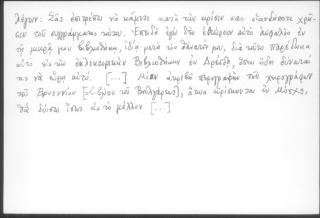 λέγων: Σᾶς ἐπιτρέπω νὰ κάμνετε κατὰ τὴν κρίσιν σας οἱανδήποτε χρῆ-
σιν τοῦ συγγράμματος τούτου. Ἐπειδὴ ἐγὼ δὲν ἐθεώρουν αὐτὸ ἀσφαλὲς ἐν
τῇ μικρᾷ μου βιβλιοθήκῃ, ἰδίᾳ μετὰ τὸν θάνατόν μου, διὰ τοῦτο παρέδωκα
αὐτὸ εἰς τὴν ἐκλεκτορικὴν Βιβλιοθήκην ἐν Δρέσδῃ, ὅπου ἤδη δύναταί
τις νὰ εὕρῃ αὐτό. [...] Μίαν ἀκριβῆ περιγραφὴν τῶν χειρογράφων
τοῦ [...], ἅτινα εὑρίσκονται ἐν Μόσχᾳ,
θὰ δώσω ἴσως εἰς τὸ μέλλον [...]